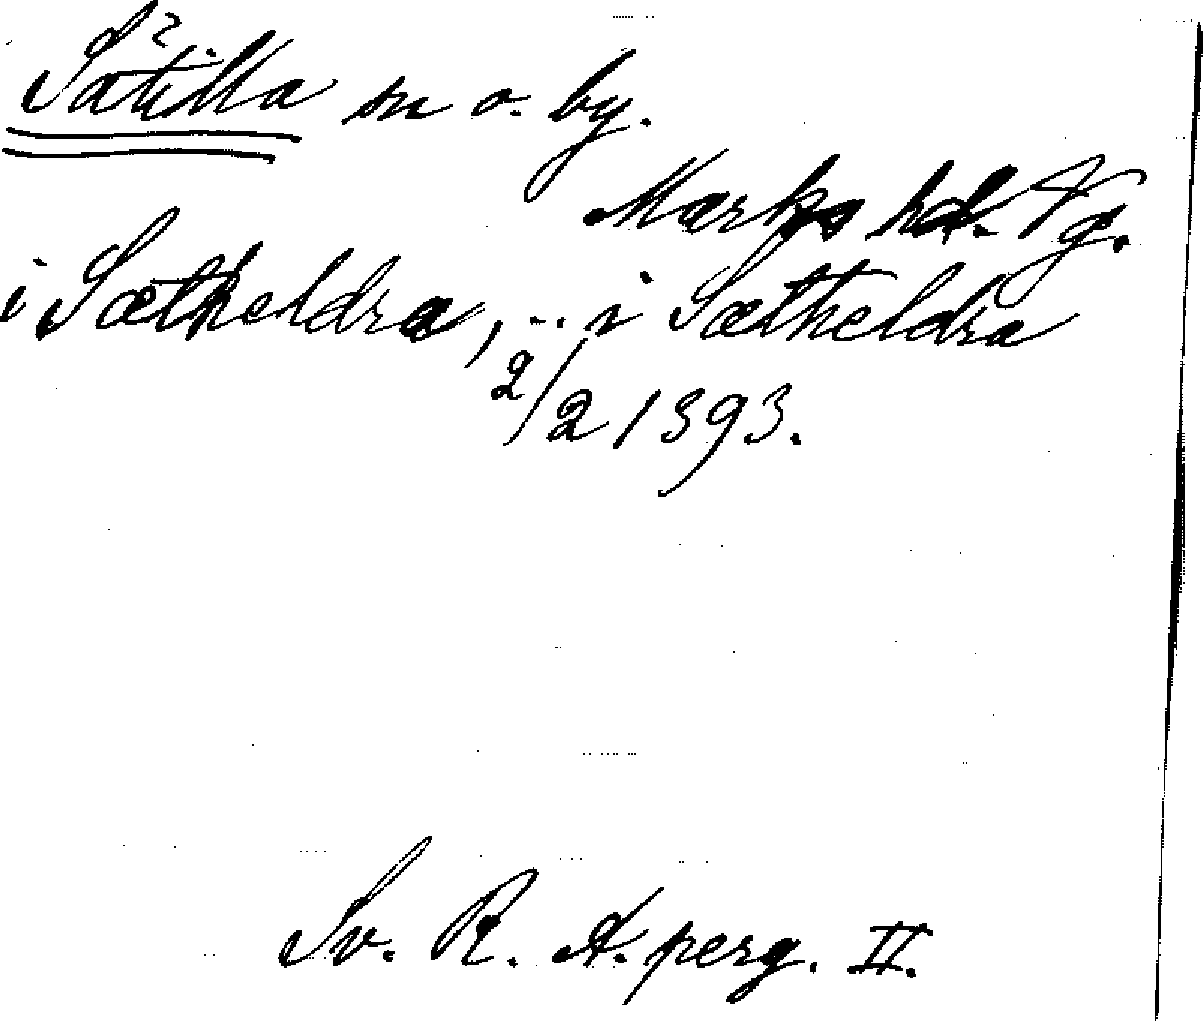 Sätilla sn o. by.
Marks hd. Vg.
i Sætheldra, ... i Sætheldra
2/2 1393.
Sv. R. A. perg. II.